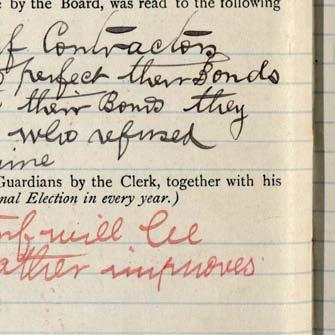 by the Board, was read to the following
of Contractors
perfect their Bonds
their Bonds they
who refused
Guardians by the Clerk, together with his
nal Election in every year.)
will be
ather improves